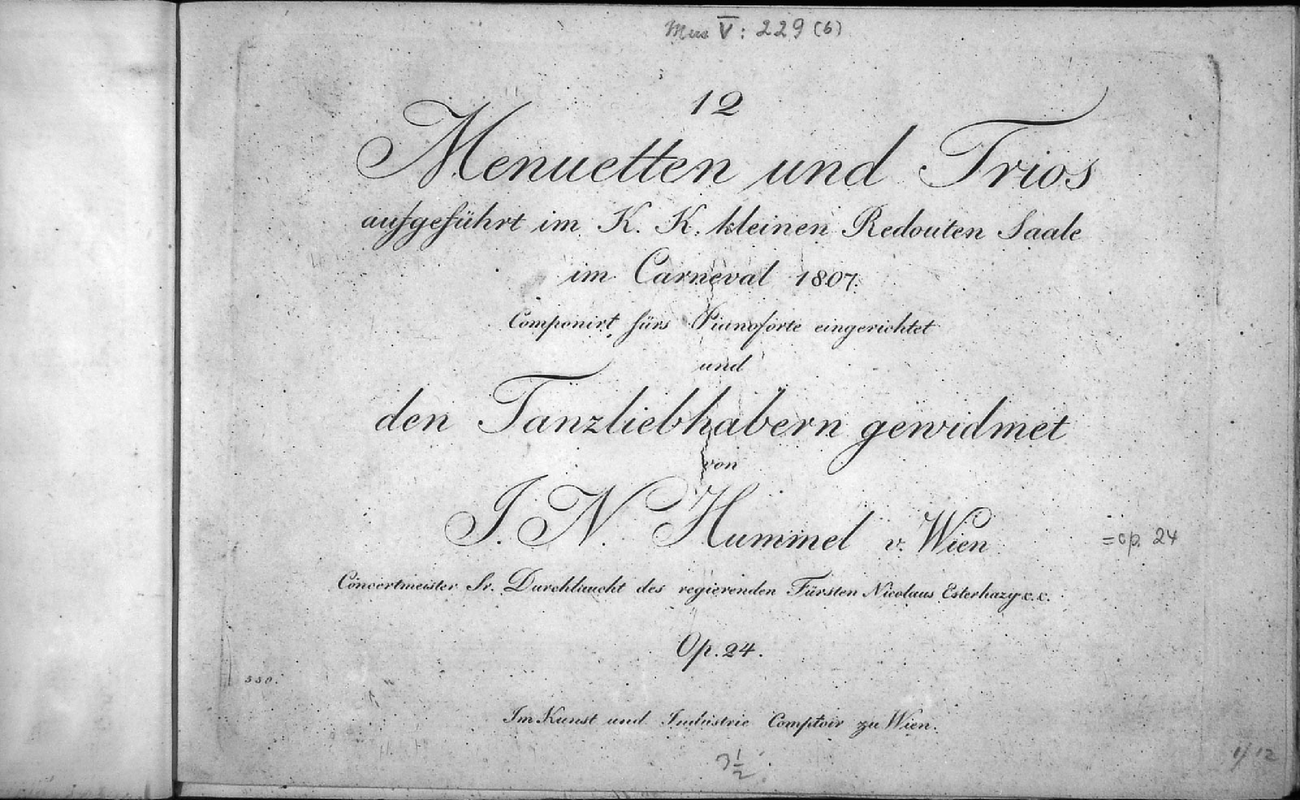 Mus V: 229 (6)
12
Menuetten und Trios
aufgeführt im K. K. kleinen Redouten Saale
im Carneval 1807.
Componirt, fürs Pianoforte eingerichtet
und
den Tanzliebhabern gewidmet
von
J. N. Hummel v. Wien
=op. 24
Concertmeister Sr. Durchlaucht des regierenden Fürsten Nicolaus Esterhazy x. x.
Op. 24.
550.
Im Kunst und Industrie Comptoir zu Wien.
1/12